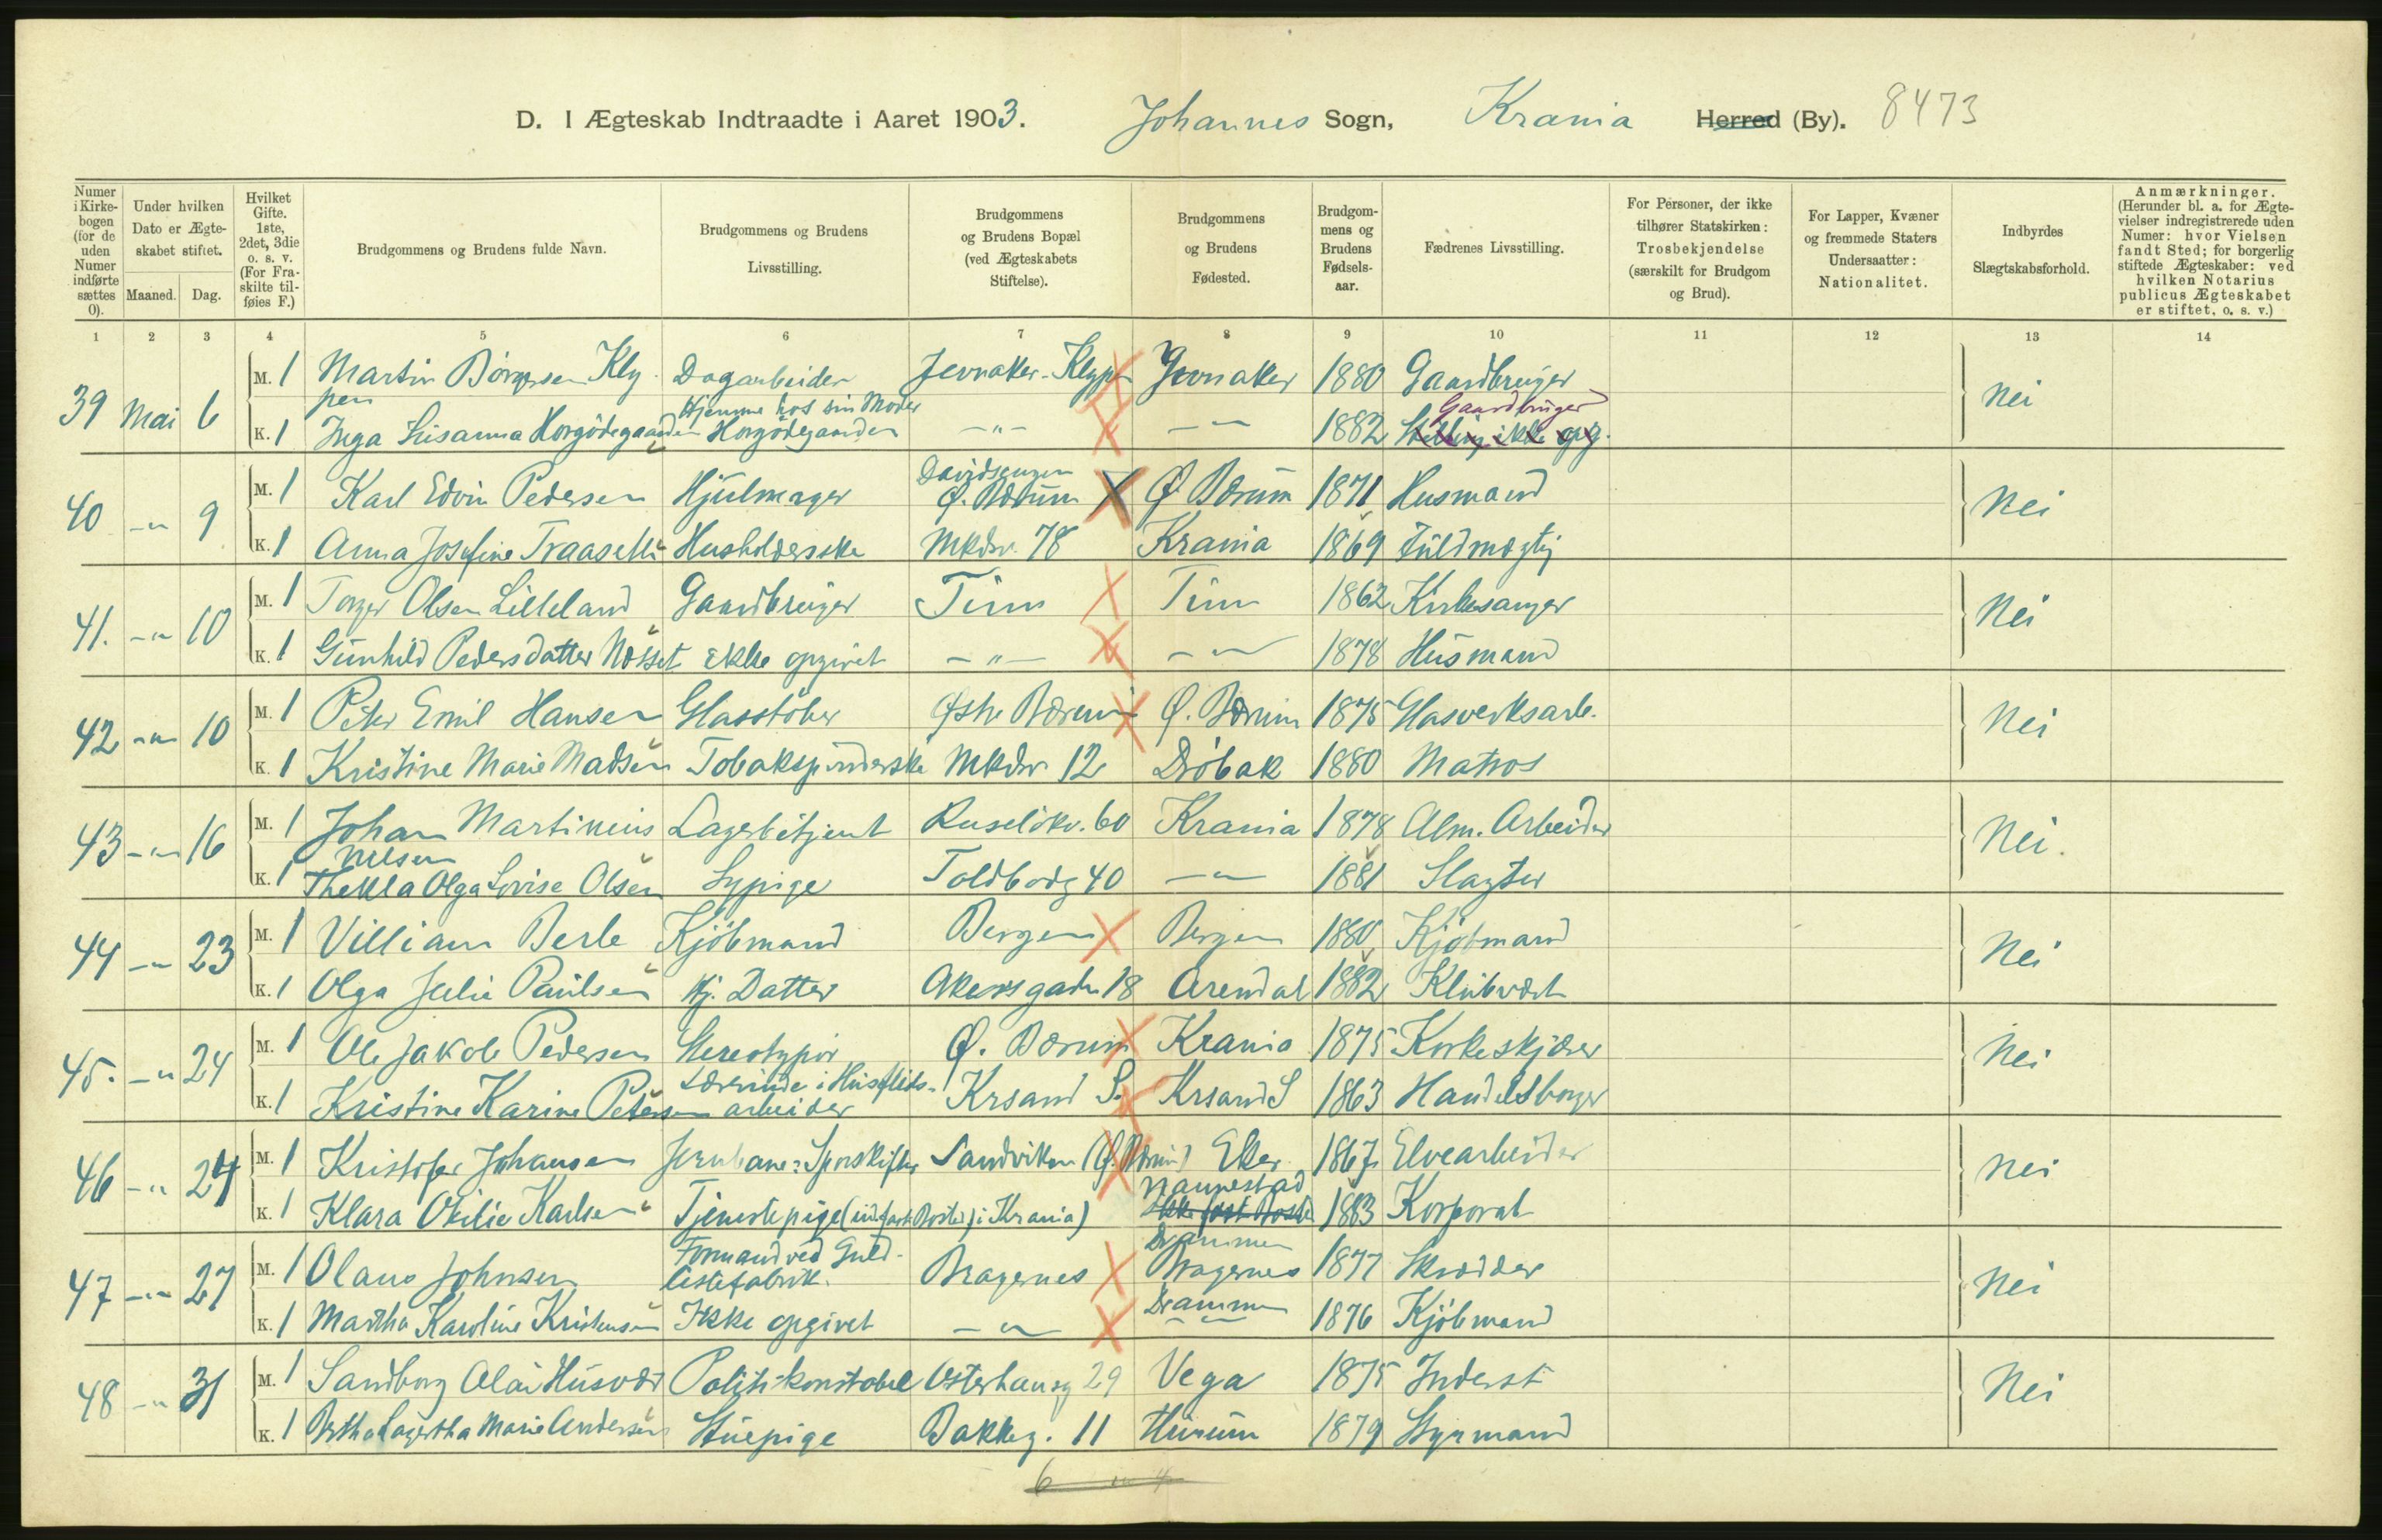 D. I Ægteskab Indtraadte i Aaret 1903. Johannes Sogn, Krania Herred (By). 8473
Numer i Kirkebogen (for de uden Numer indførte sættes 0).
Under hvilken Dato er Ægteskabet stiftet.
Maaned. Dag.
Hvilket Gifte. 1ste, 2det, 3die o. s. v. (For Fraskilte tilføies F.)
Brudgommens og Brudens fulde Navn.
Brudgommens og Brudens Livsstilling.
Brudgommens og Brudens Bopæl (ved Ægteskabets Stiftelse).
Brudgommens og Brudens Fødested.
Brudgommens og Brudens Fødselsaar.
Fædrenes Livsstilling.
For Personer, der ikke tilhører Statskirken: Trosbekjendelse (særskilt for Brudgom og Brud).
For Lapper, Kvæner og fremmede Staters Undersaatter: Nationalitet.
Indbyrdes Slægtskabsforhold.
Anmærkninger. (Herunder bl. a. for Ægtevielser indregistrerede uden Numer: hvor Vielsen fandt Sted; for borgerlig stiftede Ægteskaber: ved hvilken Notarius publicus Ægteskabet er stiftet, o. s. v.)
1 2 3 4 5 6 7 8 9 10 11 12 13 14
39 Mai 6 M. 1 Martin Børgersen Klyppen Dagarbeider Jevnaker Jevnaker 1880 Gaardbruger Nei
K. 1 Inga Susanna Hjemme hos sin Moder -"- -"- 1882 Gaardbruger Stilling ikke opg.
40 -"- 9 M. 1 Karl Edvin Pedersen Hjulmager Davidsengen Ø. Bærum Ø. Bærum 1871 Husmand Nei
K. 1 Anna Josefine Traaselli Husholderske Mkdsv. 78 Krania 1869 Fuldmægtig
41. -"- 10 M. 1 Torger Olsen Lilleland Gaardbruger Tinn Tinn 1862 Kirkesanger Nei
K. 1 Gunhild Pedersdatter Næsset ikke opgivet -"- -"- 1878 Husmand
42 -"- 10 M. 1 Peter Emil Hansen Glasstøber Østre Bærum Ø. Bærum 1875 Glasverksarb. Nei
K. 1 Kristine Marie Madsen Tobakspinderske Mkdsv. 12 Drøbak 1880 Matros
43 -"- 16 M. 1 Johan Martinius Nilsen Lagerbetjent Ruseløkv. 60 Krania 1878 Alm. Arbeider Nei.
K. 1 Thekla Olga Lovise Olsen Sypige Toldbodg 40 -"- 1881 Slagter
44 -"- 23 M. 1 Villiam Berle Kjøbmand Bergen Bergen 1880 Kjøbmand Nei
K. 1 Olga Julie Paulsen Hj. Datter Akersgaden 18 Arendal 1882 Klubvært
45. -"- 24 M. 1 Ole Jakob Pedersen Stereotypør Ø. Bærum Krania 1875 Korkeskjærer Nei
K. 1 Kristine Karine Petersen Lærerinde i Husflidsarbeider Krsand S. Krsand S 1863 Handelsborger
46 -"- 24 M. 1 Kristofer Johansen Jernbane-Sporskifter Sandviken (Ø. Bærum) Eker 1867 Elvearbeider Nei
K. 1 Klara Otilie Karlsen Tjenestepige (uden fast Bosted i Krania) Nannestad Ikke fast Bosted 1883 Korporal
47 -"- 27 M. 1 Olaus Johnsen Formand ved Guldlistefabrik. Bragernes Drammen Bragernes 1877 Skrædder Nei
K. 1 Martha Karoline Kristensen Ikke opgivet -"- Drammen -"- 1876 Kjøbmand
48 -"- 31 M. 1 Sandborg Olai Husvær Politikonstabel Osterhausg 29 Vega 1875 Inderst Nei
K. 1 Bertha Lagertha Marie Andersen Stuepige Bakkeg. 11 Hurum 1879 Styrmand